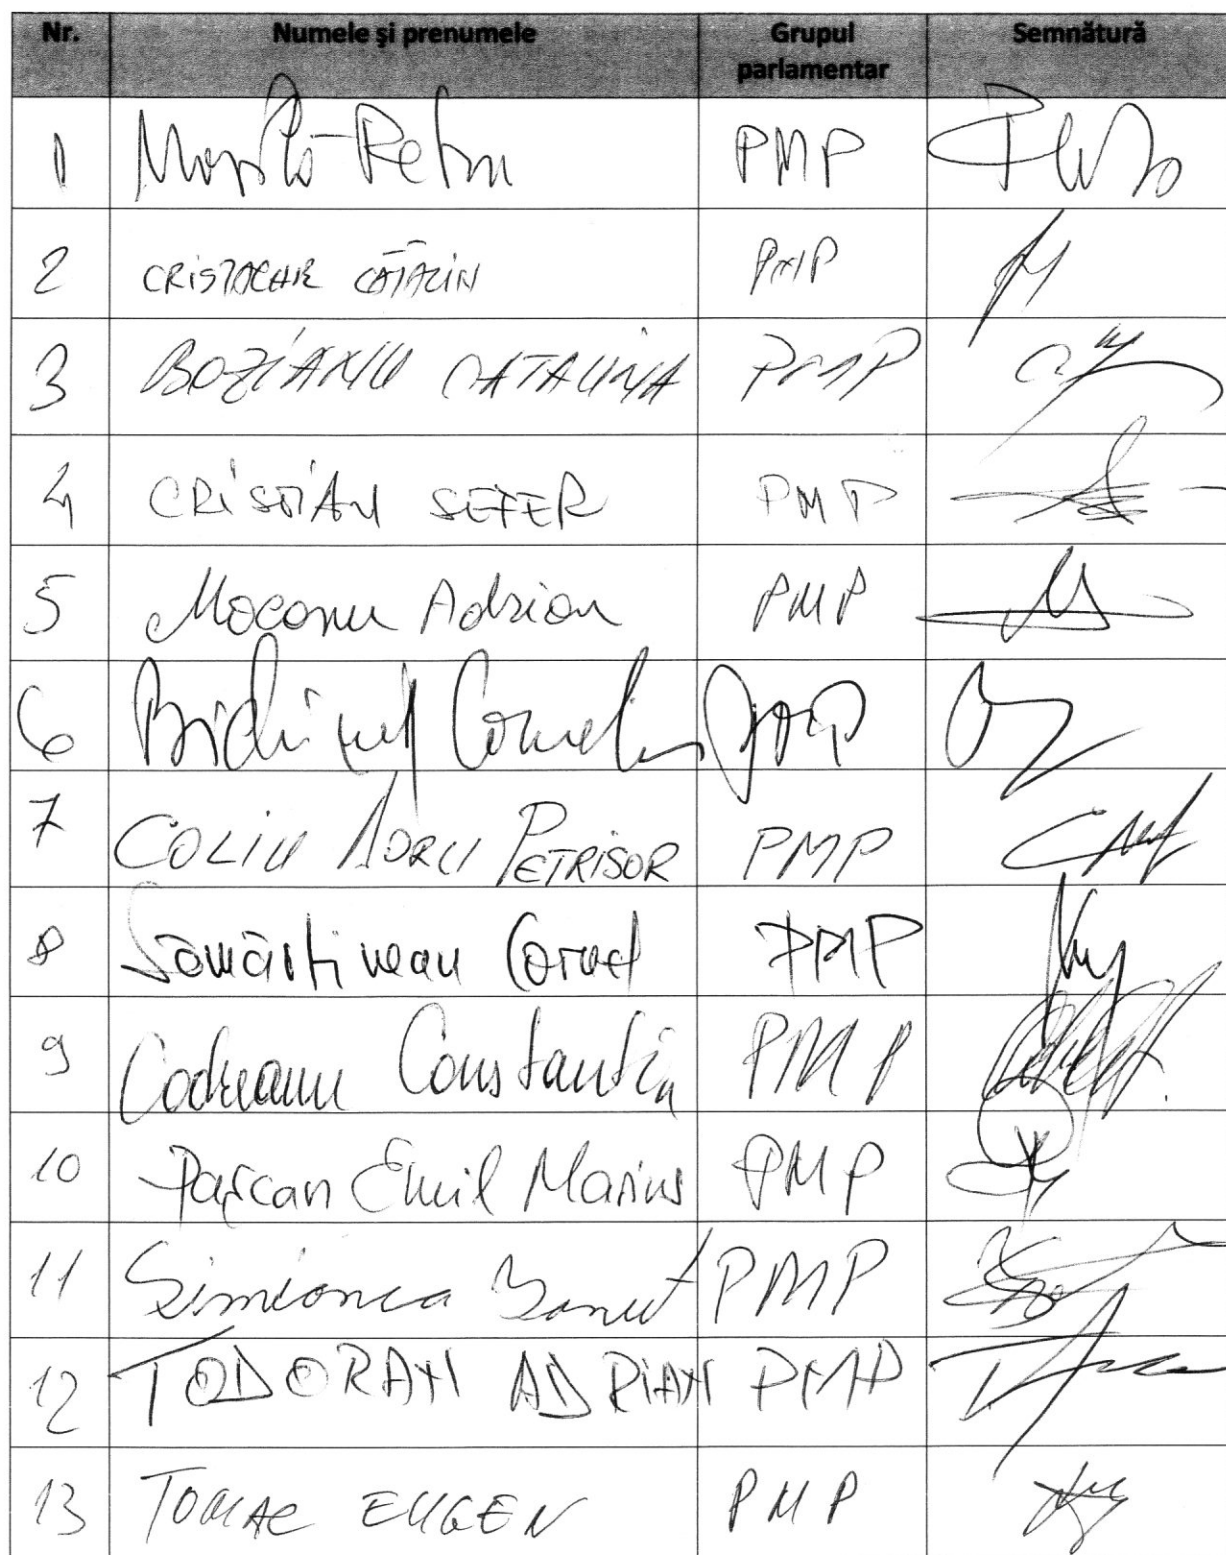 Nr. Numele și prenumele Grupul parlamentar Semnătură
1 Movilă Petru PMP
2 CRISTACHE CĂTĂLIN PMP
3 BOZIANU CATALINA PMP
4 CRISTIAN SEFER PMP
5 Mocanu Adrian PMP
6 Cornel PMP
7 COLIU DORU PETRISOR PMP
8 Sămărtinean Cornel PMP
9 Codreanu Constantin PMP
10 Pașcan Emil Marius PMP
11 Simionca Ionut PMP
12 TODORAN ADRIAN PMP
13 TOMAC EUGEN PMP